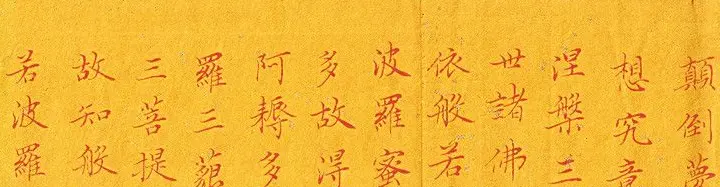 顛倒夢
想究竟
涅槃三
世諸佛
依般若
波羅蜜
多故得
阿耨多
羅三藐
三菩提
故知般
若波羅